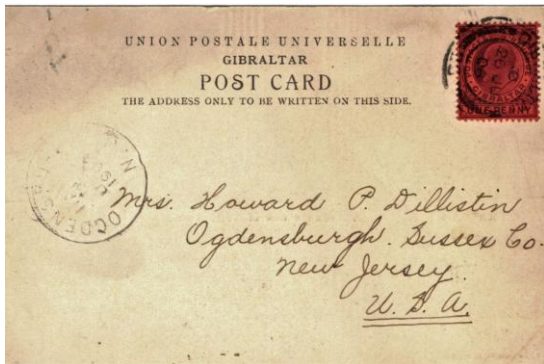 UNION POSTALE UNIVERSELLE
GIBRALTAR
POST CARD
THE ADDRESS ONLY TO BE WRITTEN ON THIS SIDE.
GIBRALTAR
ONE PENNY
OGDENSBURG N.J.
Mrs. Howard P. Dillistin
Ogdensburgh. Sussex Co.
New Jersey.
U. S. A.